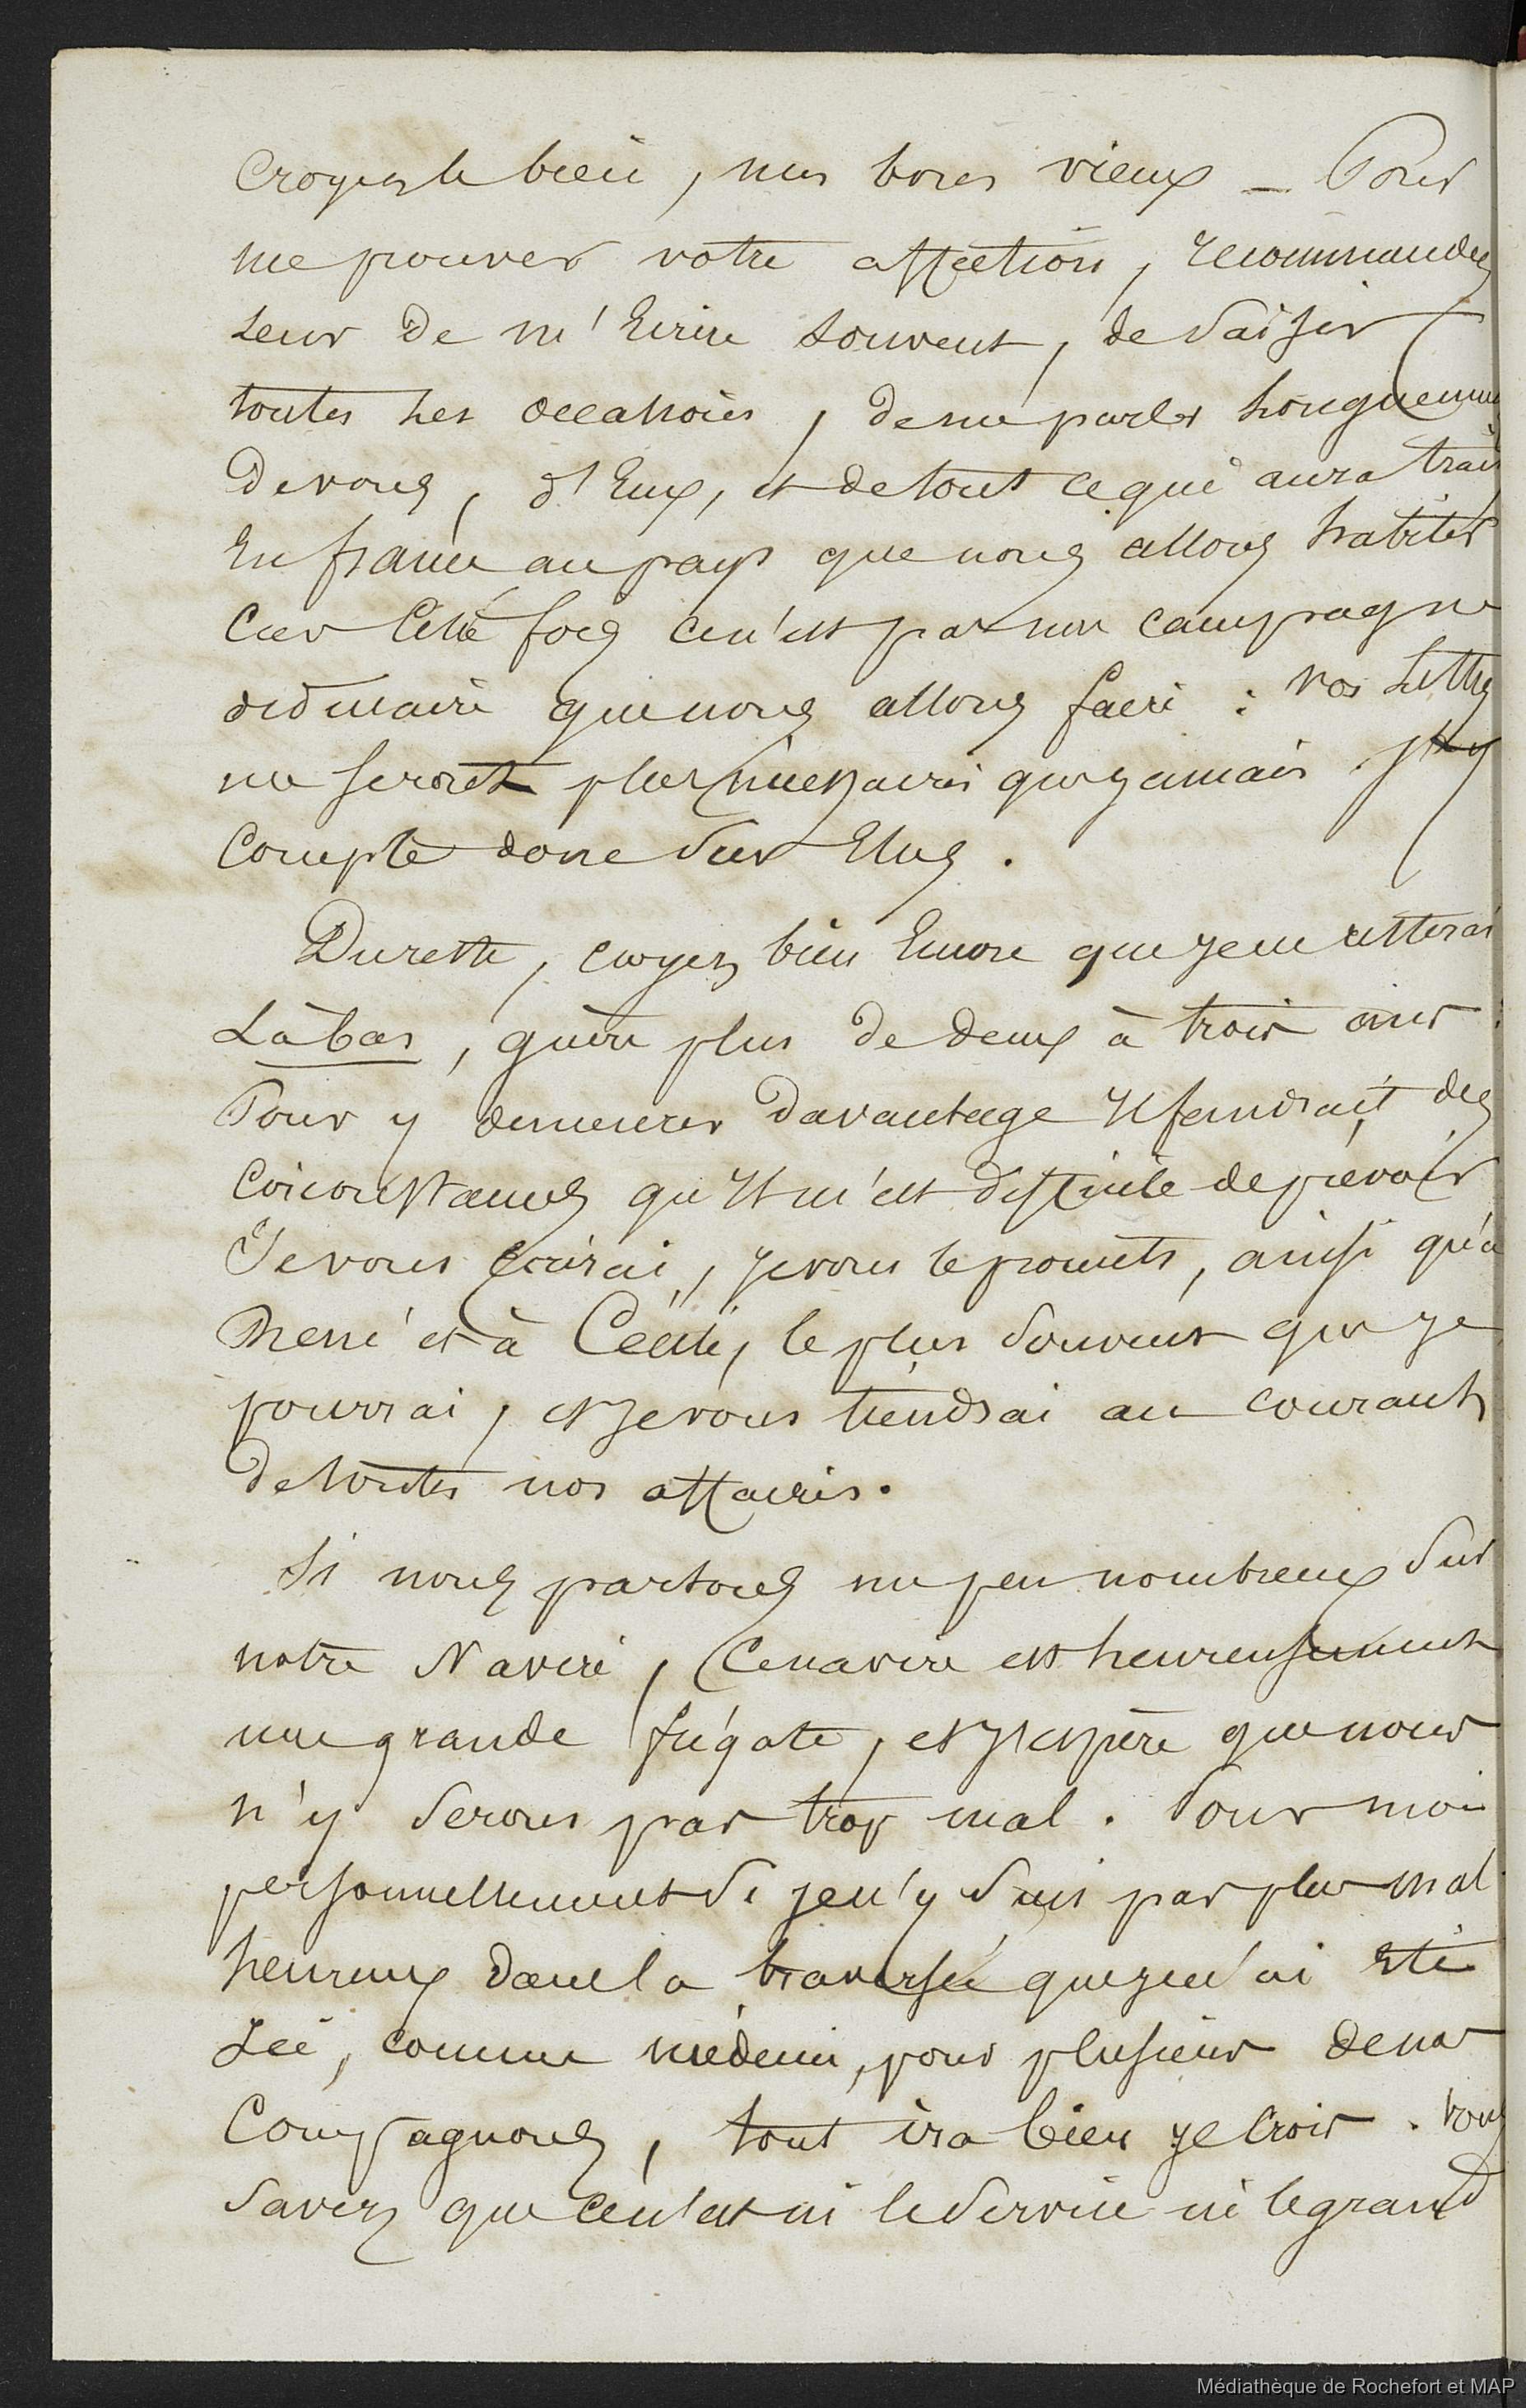 Croyez le bien, mes bons vieux _ Pour
me prouver votre affection, recommandez
leur de m'Ecrire souvent, de saisir
toutes les occasions, de me parler longuement
de vous, d'Eux, et de tout ce qui aura trait
En france au pays que nous allons habiter
Car Cette fois ce n'est pas une campagne
ordinaire que nous allons faire : vos Lettres
me seront plus nécessaires que jamais. J'
Compte donc sur Elles.
Dureste, croyez bien Encore que je ne resterai
Làbas, guère plus de deux à trois ans :
Pour y demeurer davantage Il faudrait des
Circonstances qu'Il m'est difficile de prévoir
Je vous Ecrirai, je vous le promets, ainsi qu'à
René et à Cécile, le plus souvent que je
pourrai, et je vous tiendrai au courant
de toutes nos affaires.
Si nous partons un peu nombreux sur
notre Navire, Ce navire est heureusement
une grande frégate, et J'espère que nous
n'y serons pas trop mal. Pour moi
personnellement si je n'y suis pas plus mal
heureux dans la traversée que je n'ai Eté
Ici, comme médecin, pour plusieurs de nos
Compagnons, tout ira bien je Crois. Vous
savez que ce n'est ni le service ni le grand
Médiathèque de Rochefort et MAP